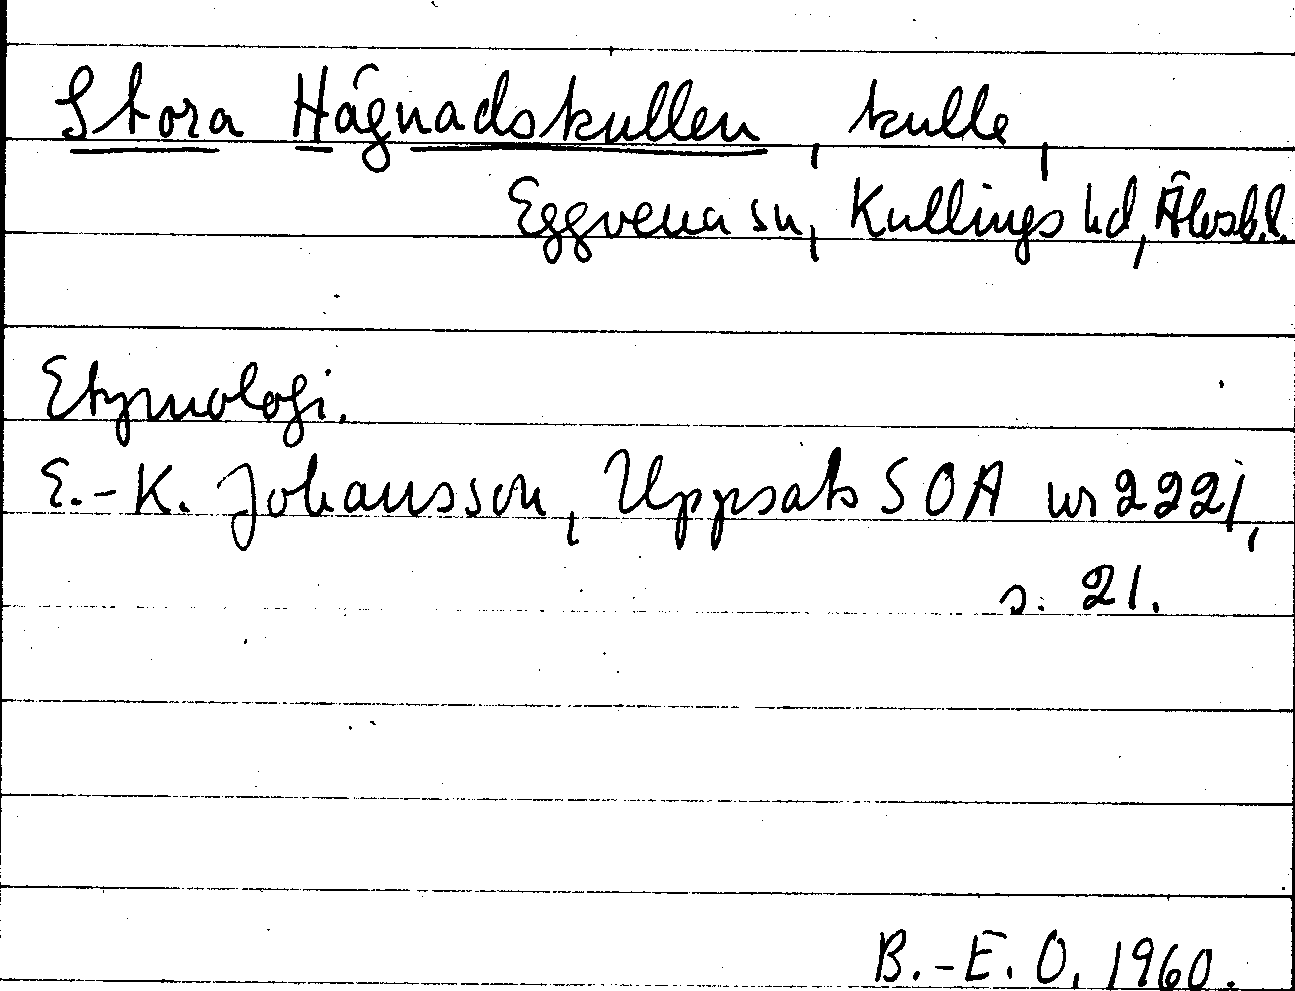 Stora Hägnadskullen, kulle,
Eggvena sn, Kullings hd, Älvsb.l.
Etymologi.
E.-K. Johansson, Uppsats SOA nr 2221,
s. 21.
B.-E. O. 1960.